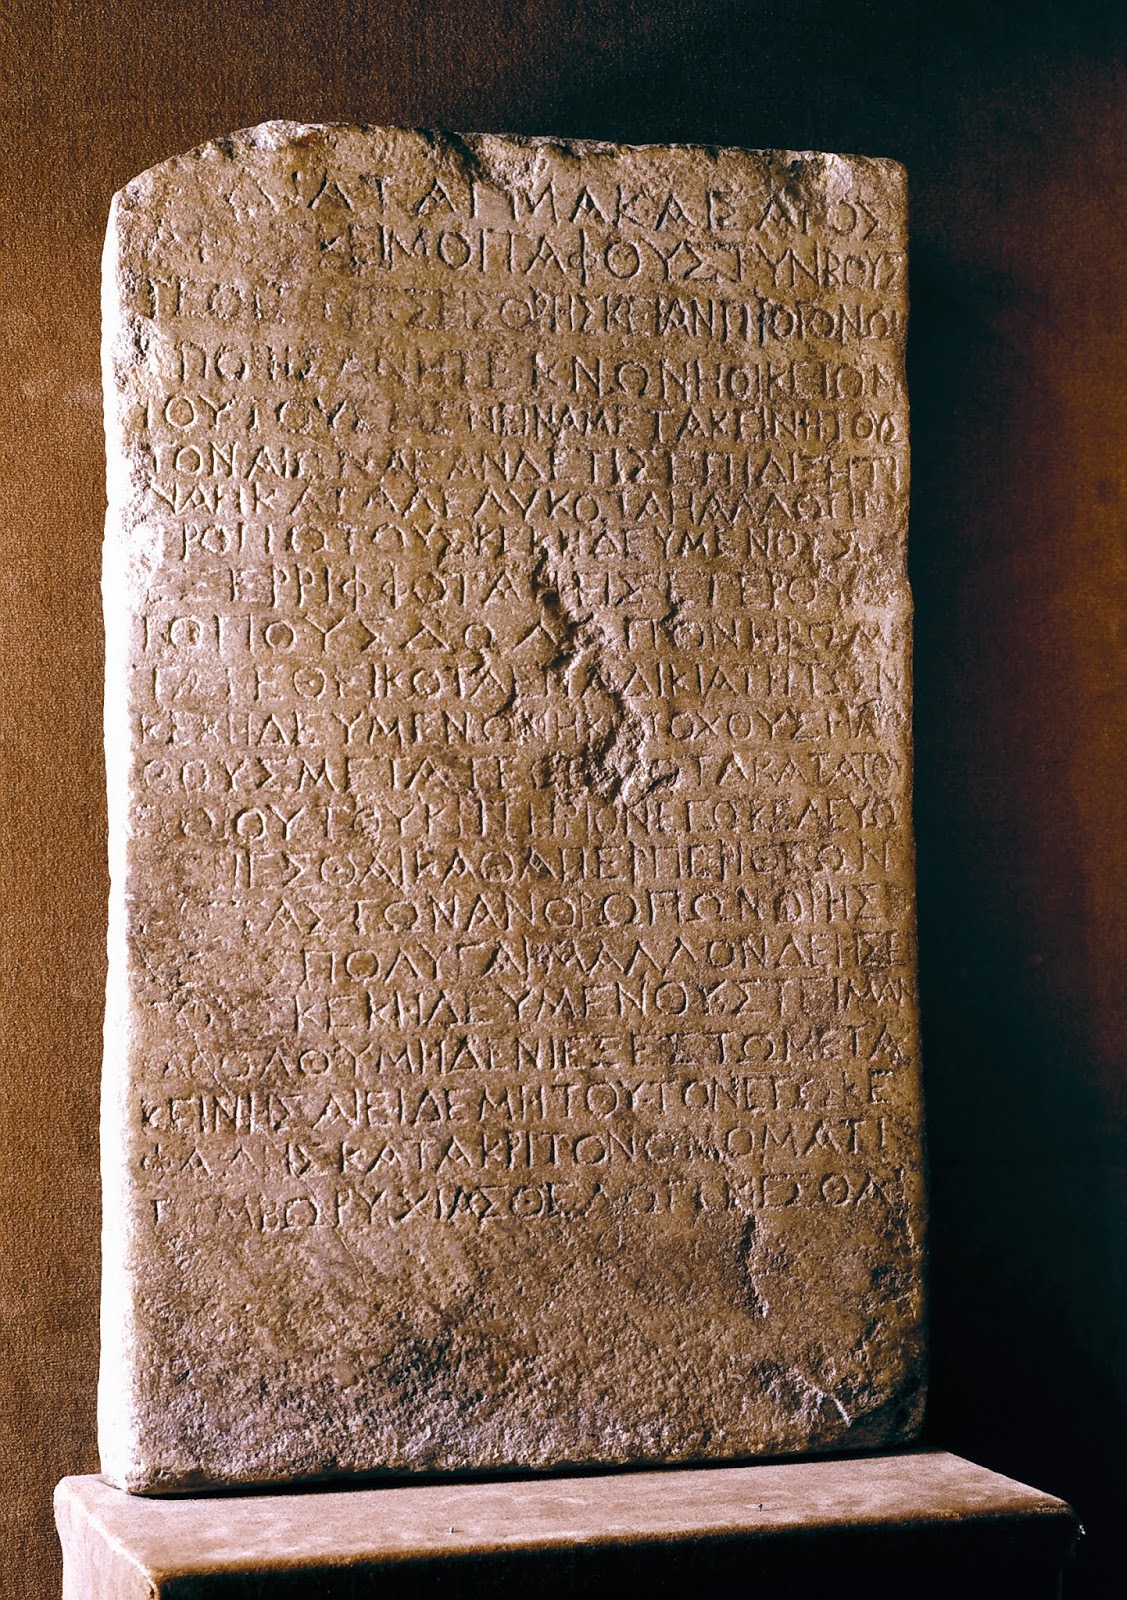 ΔΙΑΤΑΓΜΑ ΚΑΙΣΑΡΟΣ
ΑΡΕΣΚΕΙ ΜΟΙ ΤΑΦΟΥΣ ΤΥΝΒΟΥΣ
ΤΕ ΟΙΤΙΝΕΣ ΕΙΣ ΘΡΗΣΚΕΙΑΝ ΠΡΟΓΟΝΩΝ
ΕΠΟΙΗΣΑΝ Η ΤΕΚΝΩΝ Η ΟΙΚΕΙΩΝ
ΤΟΥΤΟΥΣ ΜΕΝΕΙΝ ΑΜΕΤΑΚΕΙΝΗΤΟΥΣ
ΤΟΝ ΑΙΩΝΑ ΕΑΝ ΔΕ ΤΙΣ ΕΠΙΔΙΞΗ ΤΙ
ΝΑ Η ΚΑΤΑΛΕΛΥΚΟΤΑ Η ΑΛΛΩ ΤΙΝΙ
ΤΡΟΠΩ ΤΟΥΣ ΚΕΚΗΔΕΥΜΕΝΟΥΣ
ΕΞΕΡΡΙΦΦΟΤΑ Η ΕΙΣ ΕΤΕΡΟΥΣ
ΤΟΠΟΥΣ ΔΩΛΩ ΠΟΝΗΡΩ ΜΕ
ΤΑΤΕΘΕΙΚΟΤΑ ΕΠ ΑΔΙΚΙΑ ΤΗ ΤΩΝ
ΚΕΚΗΔΕΥΜΕΝΩΝ Η ΚΑΤΟΧΟΥΣ Η ΛΙ
ΘΟΥΣ ΜΕΤΑΤΕΘΕΙΚΟΤΑ ΚΑΤΑ ΤΟΙΟΥ
ΤΟΥ ΚΡΙΤΗΡΙΟΝ ΕΓΩ ΚΕΛΕΥΩ
ΓΕΝΕΣΘΑΙ ΚΑΘΑΠΕΡ ΠΕΡΙ ΘΕΩΝ
ΑΣ ΤΩΝ ΑΝΘΡΩΠΩΝ ΘΡΗΣ
ΠΟΛΥ ΓΑΡ ΜΑΛΛΟΝ ΔΕΗΣΕΙ
ΚΕΚΗΔΕΥΜΕΝΟΥΣ ΤΕΙΜΑΝ
ΚΑΘΟΛΟΥ ΜΗΔΕΝΙ ΕΞΕΣΤΩ ΜΕΤΑ
ΚΕΙΝΗΣΑΙ ΕΙ ΔΕ ΜΗ ΤΟΥΤΟΝ ΕΓΩ ΚΕ
ΦΑΛΗΣ ΚΑΤΑΚΡΙΤΟΝ ΟΝΟΜΑΤΙ
ΤΥΜΒΩΡΥΧΙΑΣ ΘΕΛΩ ΓΕΝΕΣΘΑΙ